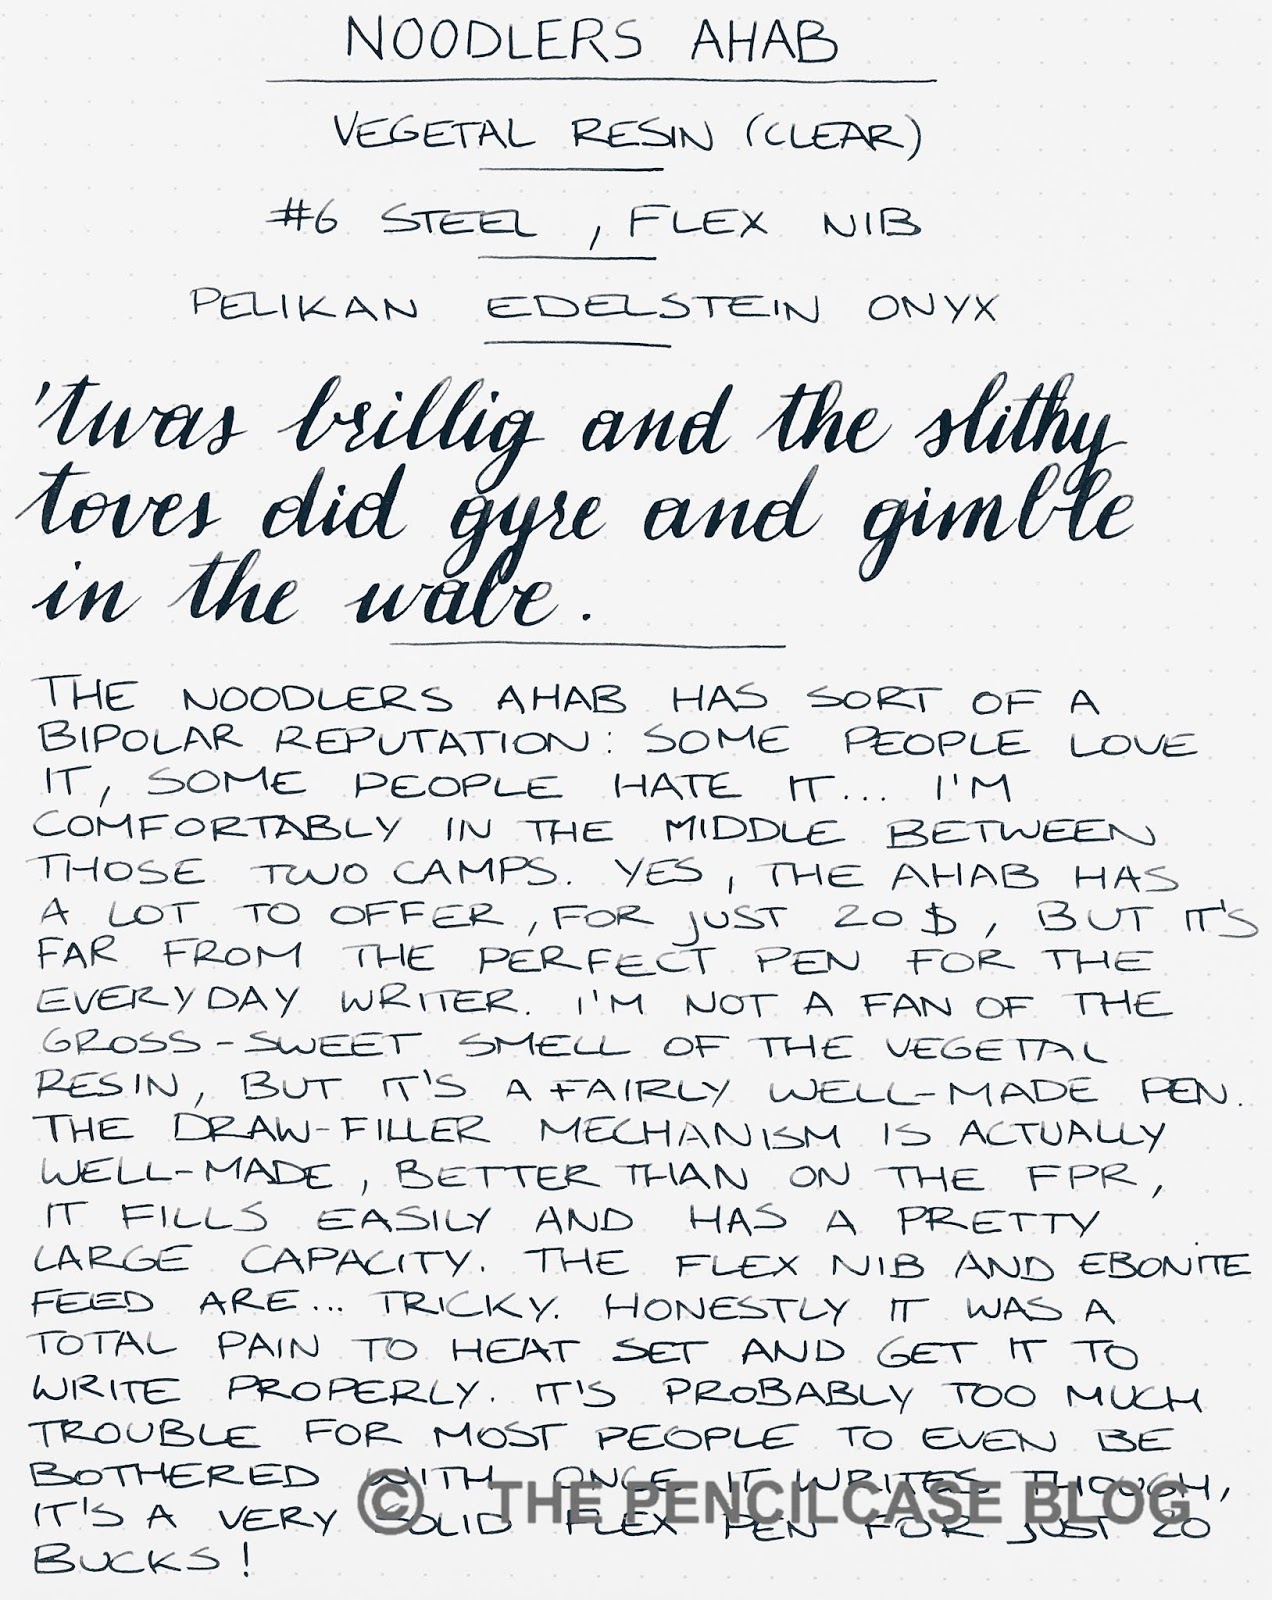 NOODLERS AHAB
VEGETAL RESIN (CLEAR)
#6 STEEL, FLEX NIB
PELIKAN EDELSTEIN ONYX
'twas brillig and the slithy
toves did gyre and gimble
in the wabe.
THE NOODLERS AHAB HAS SORT OF A
BIPOLAR REPUTATION: SOME PEOPLE LOVE
IT, SOME PEOPLE HATE IT... I'M
COMFORTABLY IN THE MIDDLE BETWEEN
THOSE TWO CAMPS. YES, THE AHAB HAS
A LOT TO OFFER, FOR JUST 20$, BUT IT'S
FAR FROM THE PERFECT PEN FOR THE
EVERYDAY WRITER. I'M NOT A FAN OF THE
GROSS-SWEET SMELL OF THE VEGETAL
RESIN, BUT IT'S A FAIRLY WELL-MADE PEN.
THE DRAW-FILLER MECHANISM IS ACTUALLY
WELL-MADE, BETTER THAN ON THE FPR,
IT FILLS EASILY AND HAS A PRETTY
LARGE CAPACITY. THE FLEX NIB AND EBONITE
FEED ARE... TRICKY. HONESTLY IT WAS A
TOTAL PAIN TO HEAT SET AND GET IT TO
WRITE PROPERLY. IT'S PROBABLY TOO MUCH
TROUBLE FOR MOST PEOPLE TO EVEN BE
BOTHERED WITH ONCE IT WRITES THOUGH,
IT'S A VERY SOLID FLEX PEN FOR JUST 20
BUCKS!
© THE PENCILCASE BLOG